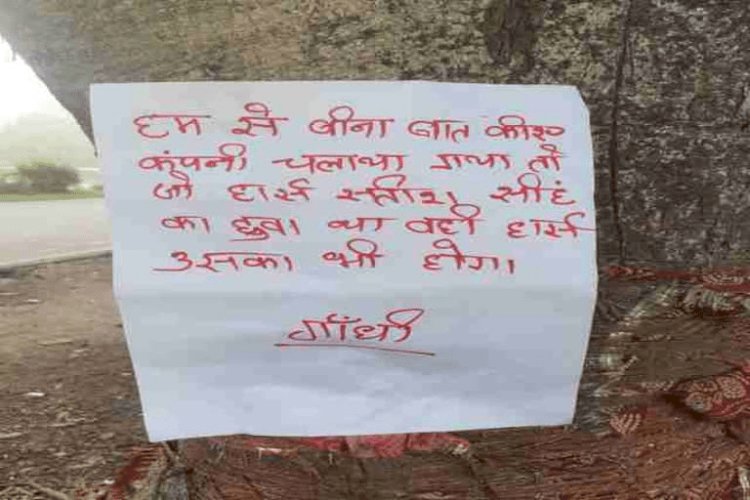 हम से बीना बात कीए
कंपनी चलाया गया तो
जो हार्स सतीश सींह
का हुवा था वही हार्स
उसका भी होगा।
गाँधी